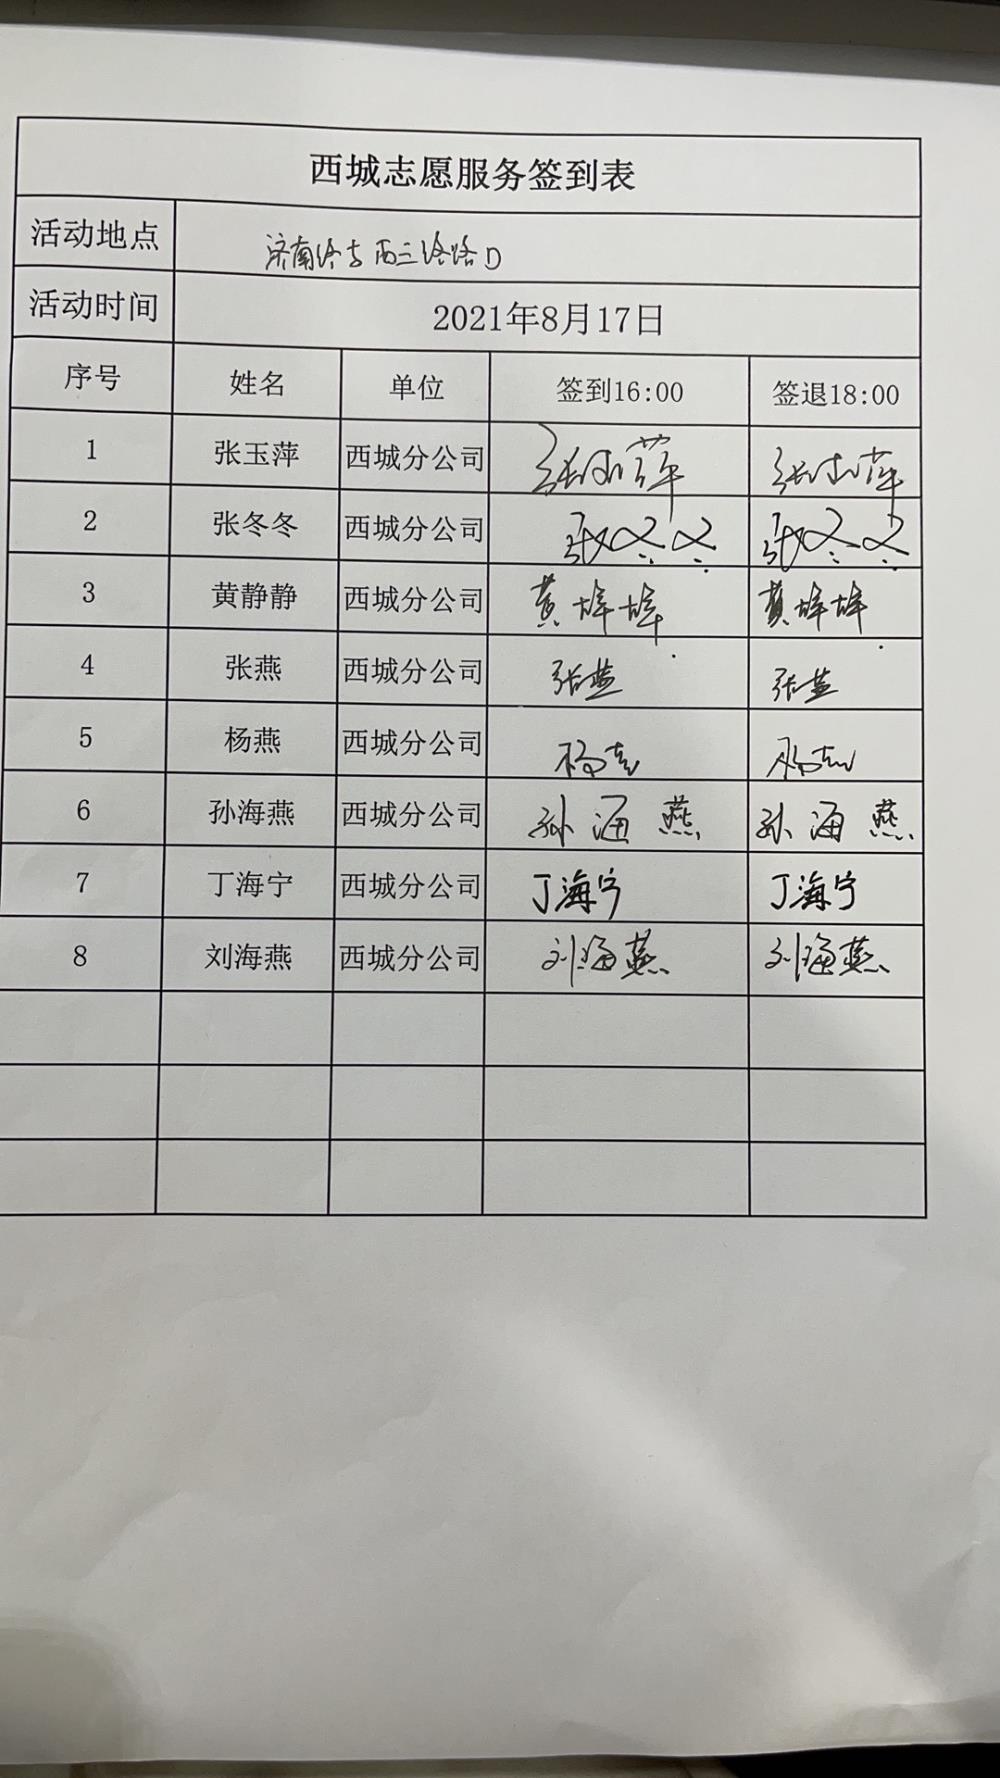 西城志愿服务签到表
活动地点 济南 路口
活动时间 2021年8月17日
序号 姓名 单位 签到16:00 签退18:00
1 张玉萍 西城分公司 张玉萍 张玉萍
2 张冬冬 西城分公司 张冬冬 张冬冬
3 黄静静 西城分公司 黄 黄
4 张燕 西城分公司 张燕 张燕
5 杨燕 西城分公司 杨燕 杨燕
6 孙海燕 西城分公司 孙海燕 孙海燕
7 丁海宁 西城分公司 丁海宁 丁海宁
8 刘海燕 西城分公司 刘海燕 刘海燕